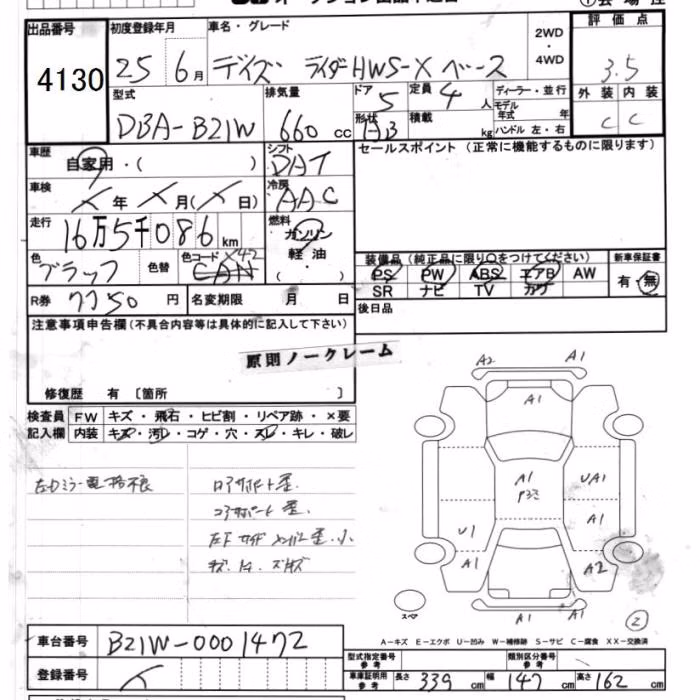 出品番号 初度登録年月 車名・グレード 2WD・4WD 評価点
4130 25 6月 デイズ ライダーHWS-X ベース 3.5
型式 排気量 ドア 定員 ディーラー・並行 外装 内装
DBA-B21W 660cc 5 4人 モデル年式 年 C C
形状 AB 積載 kg ハンドル 左・右
車歴 シフト セールスポイント (正常に機能するものに限ります)
自家用・( ) DAT
車検 冷房
×年 ×月(×日) AAC
走行 燃料
16万5千086km ガソリン
色 色替 色コード 軽油・( )
ブラック CAN X42
装備品(純正品に限り○をつけてください) 新車保証書
PS PW ABS エアB AW 有・無
SR ナビ TV カワ
R券 7750円 名変期限 月 日 後日品
注意事項申告欄(不具合内容等は具体的に記入して下さい)
原則ノークレーム
修復歴 有〔箇所 〕
検査員記入欄 FW キズ・飛石・ヒビ割・リペア跡・×要
内装 キズ・汚レ・コゲ・穴・スレ・キレ・破レ
A2 A1
A1
A1 P3ミ UA1
U1 A1
A1 A2
A1 A1
スペア
2
A-キズ E-エクボ U-凹み W-補修跡 S-サビ C-腐食 XX-交換済
車台番号 B21W-0001472
型式指定番号 参考 類別区分番号 参考
登録番号
車庫証明用 参考 長さ 339cm 幅 147cm 高さ 162cm